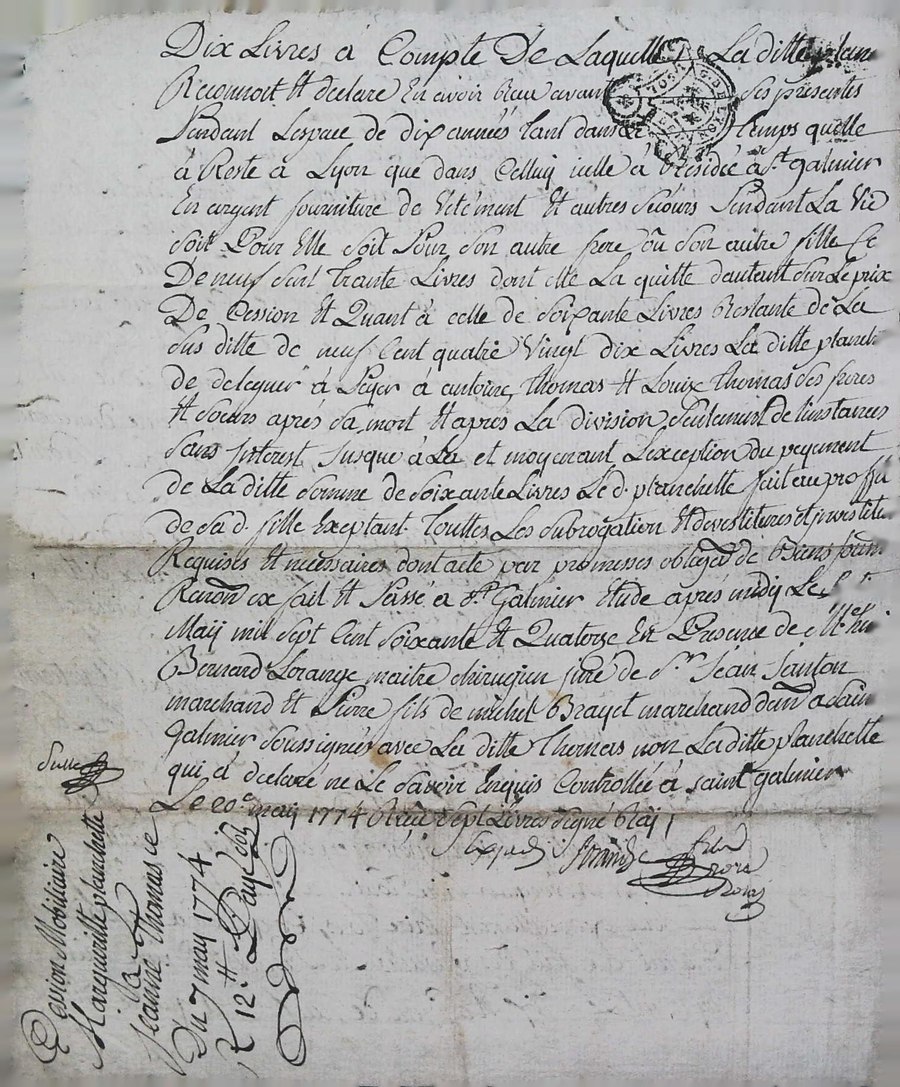 Dix Livres à Compte De Laquelle La ditte plan
Reconnoit Et declare En avoir Reçu avant Ses presentes
Pendant Lespace de dix années tant dans Le temps quelle
à Resté à Lyon que dans Celluy icelle à Residée à St galmier
En argent fourniture de Vetement Et autres Sécours Pendant La Vie
Soit Pour Elle Soit Pour Son autre frere ou Son autre fille Ce
De neuf Cent trante Livres dont elle La quitte dautant Sur Le prix
De Cession Et Quant à celle de Soixante Livres Restante de La
Sus ditte de neuf Cent quatre Vingt dix Livres La ditte planch
de deleguer à Peyer à antoine Thomas Et Louise Thomas Ses freres
Et Soeurs apres Sa mort Et après La division Seulement de
Sans Interest Jusque à La et moyenant Lexception du payement
de La ditte Somme de Soixante Livres La d. planchette fait au proffit
de Sa d. fille Exeptant touttes Les Subrogation Et devestitures et investitu
Requises Et necessaires dont acte par promesses obligaõn de Biens
Renõn ex fait Et Passé à St Galmier Etude après midy Le Sept
May mil Sept Cent Soixante Et Quatorze En Presence de
Bernard Lorange maitre chirurgien juré de Sr Jean Janton
marchand Et Pierre fils de michel Brayet marchand dem à Sain
Galmier Soussignés avec La ditte Thomas non La ditte planchette
qui à declaré ne Le Savoir Enquis Controllée à Saint galmier
Le 20e may 1774 Reçu Sept Livres Signé Ray
Cession Mobiliaire
Margueritte planchette
à La
Jeanne Thomas
Du 7 may 1774